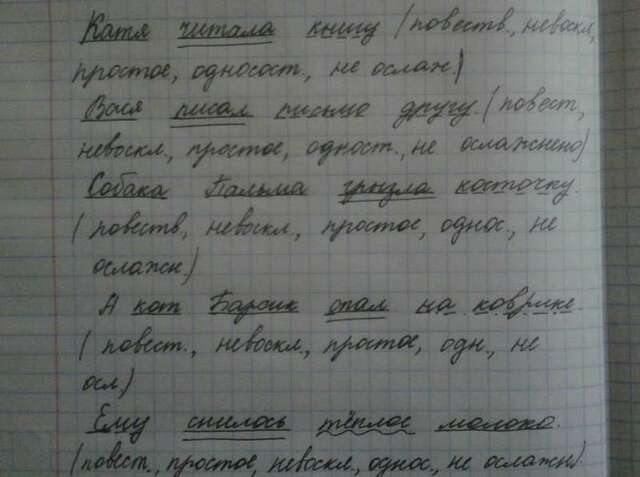 Катя читала книгу (повеств., невоскл.,
простое, односост., не ослаж.)
Вася писал письмо другу. (повест.,
невоскл., простое, одност., не ослажнено)
Собака Пальма грызла косточку.
(повеств, невоскл., простое, однос., не
ослажн.)
А кот Барсик спал на коврике.
(повест., невоскл., простое, одн., не
осл.)
Ему снилось тёплое молоко.
(повест., простое, невоскл., однос., не ослажн.)